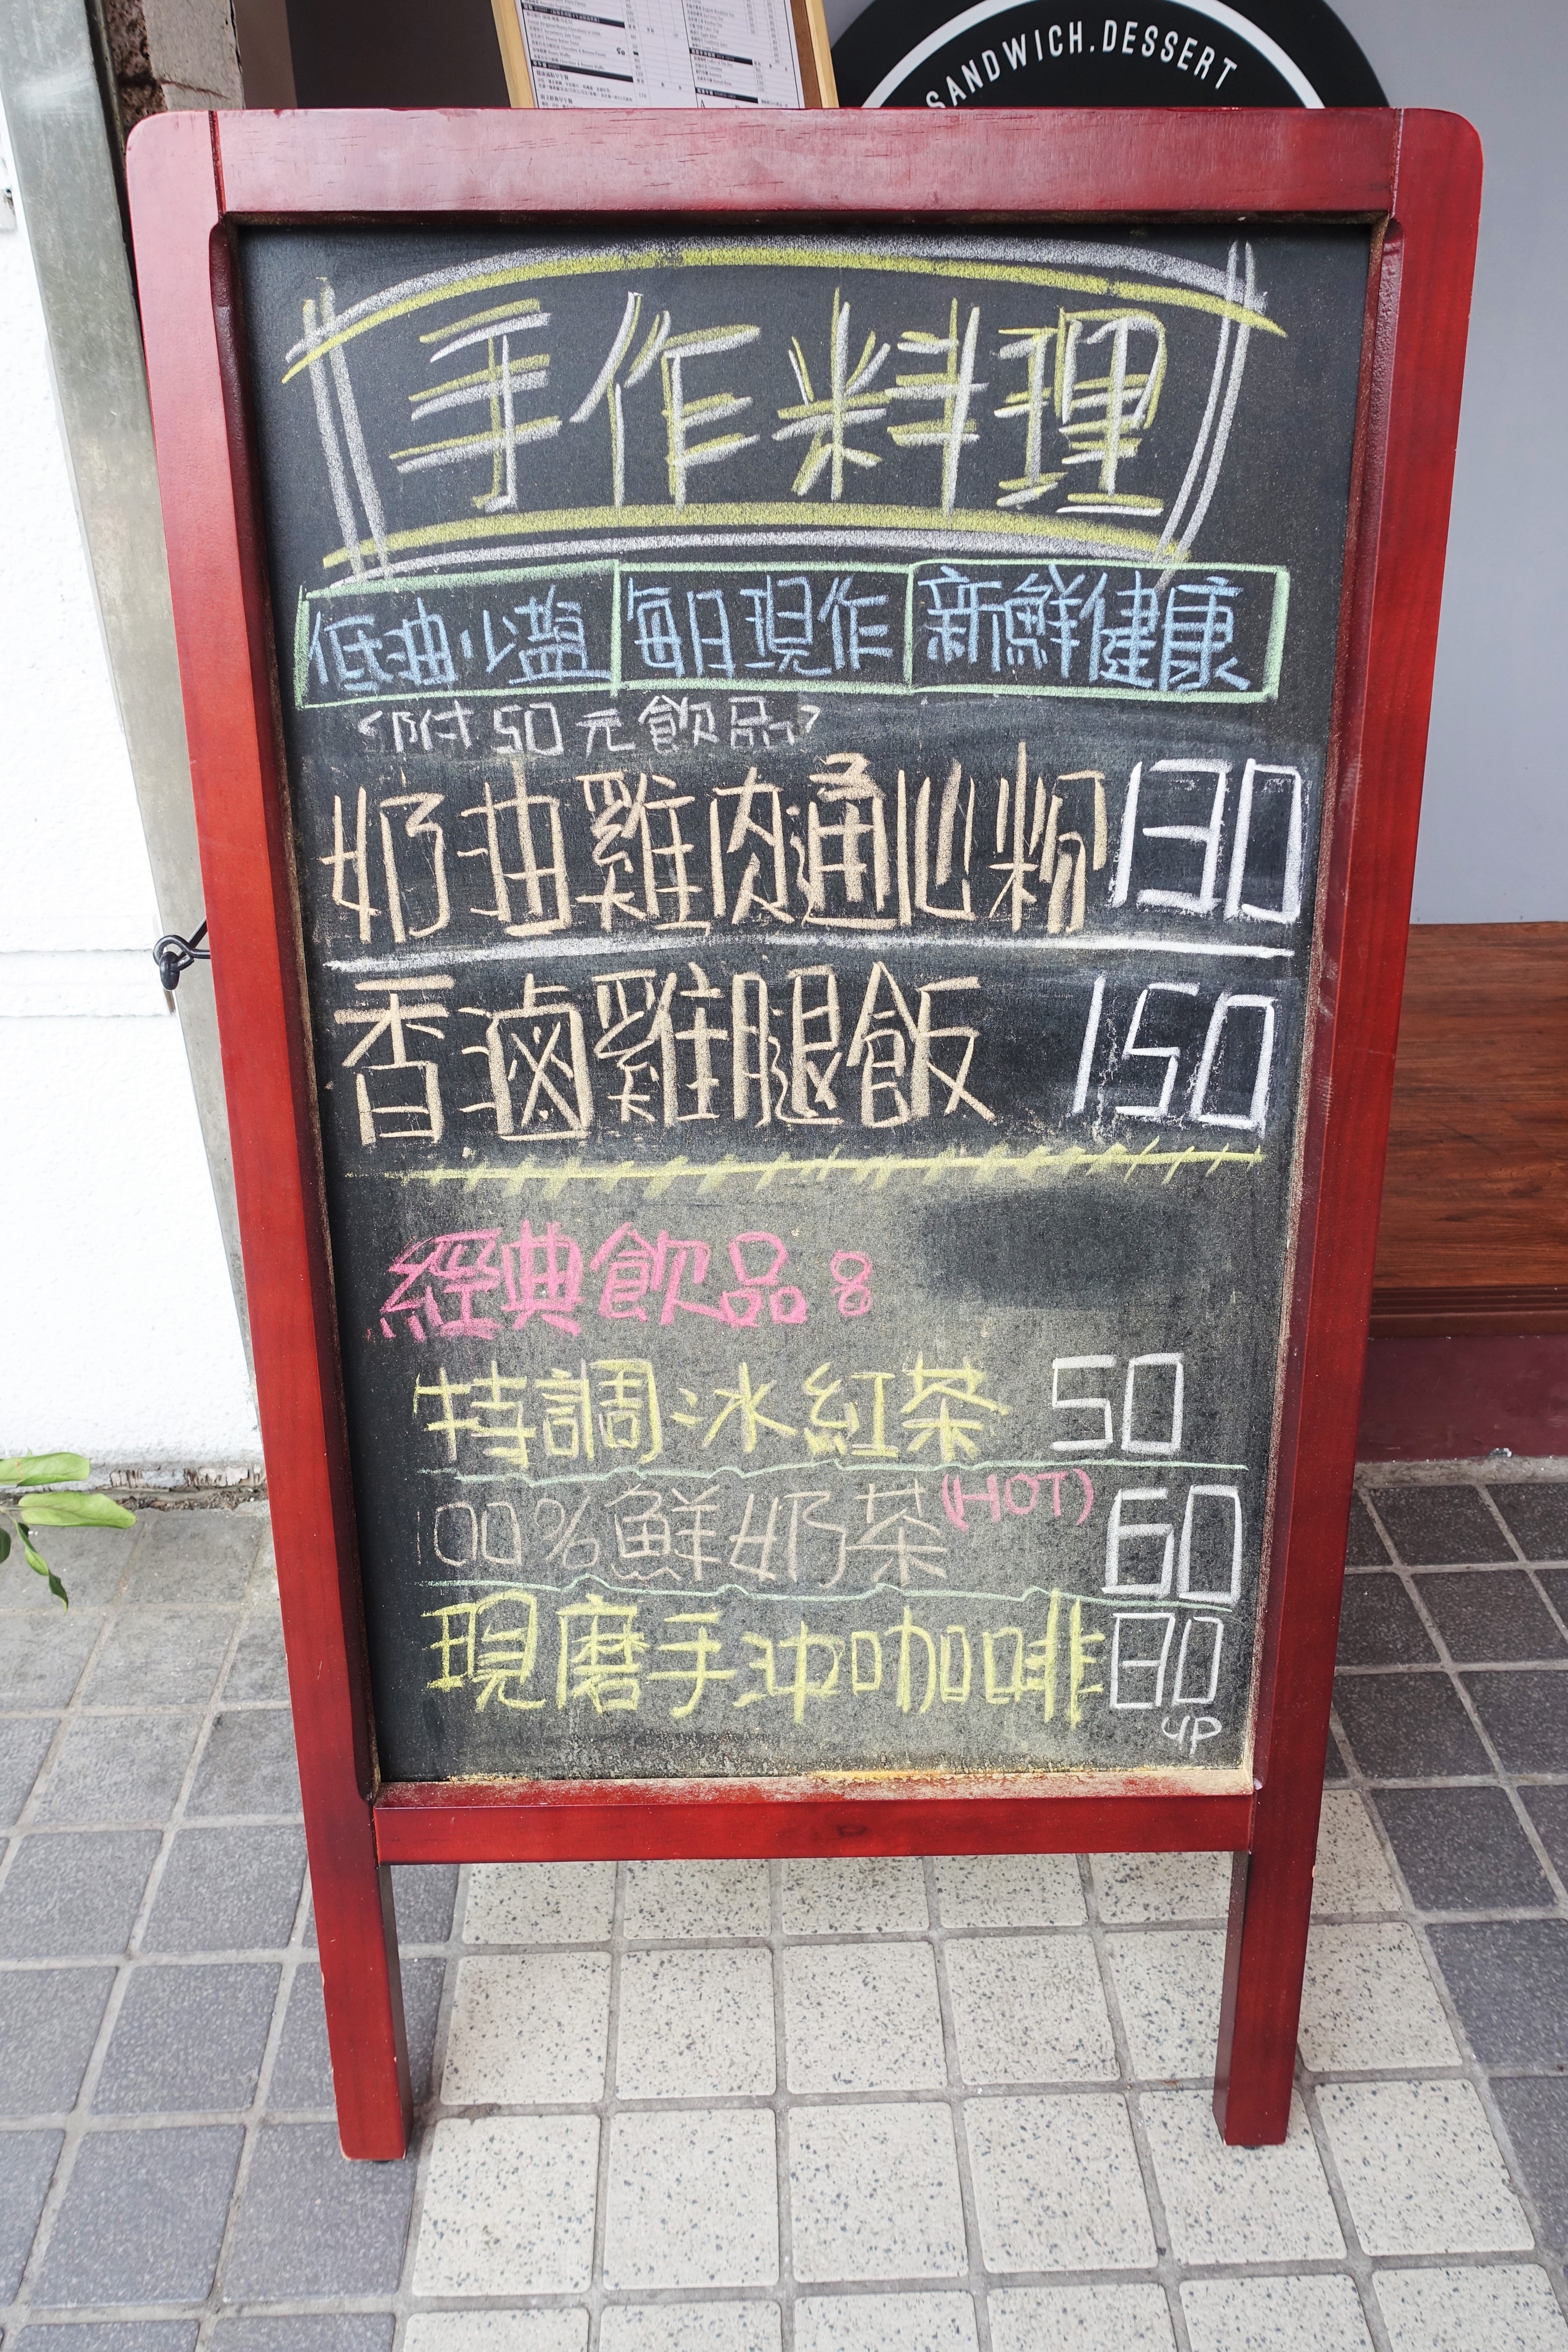 SANDWICH.DESSERT
手作料理
低油少鹽 每日現作 新鮮健康
附50元飲品
奶油雞肉通心粉 130
香滷雞腿飯 150
經典飲品:
特調冰紅茶 50
100%鮮奶茶(HOT) 60
現磨手沖咖啡 80
UP